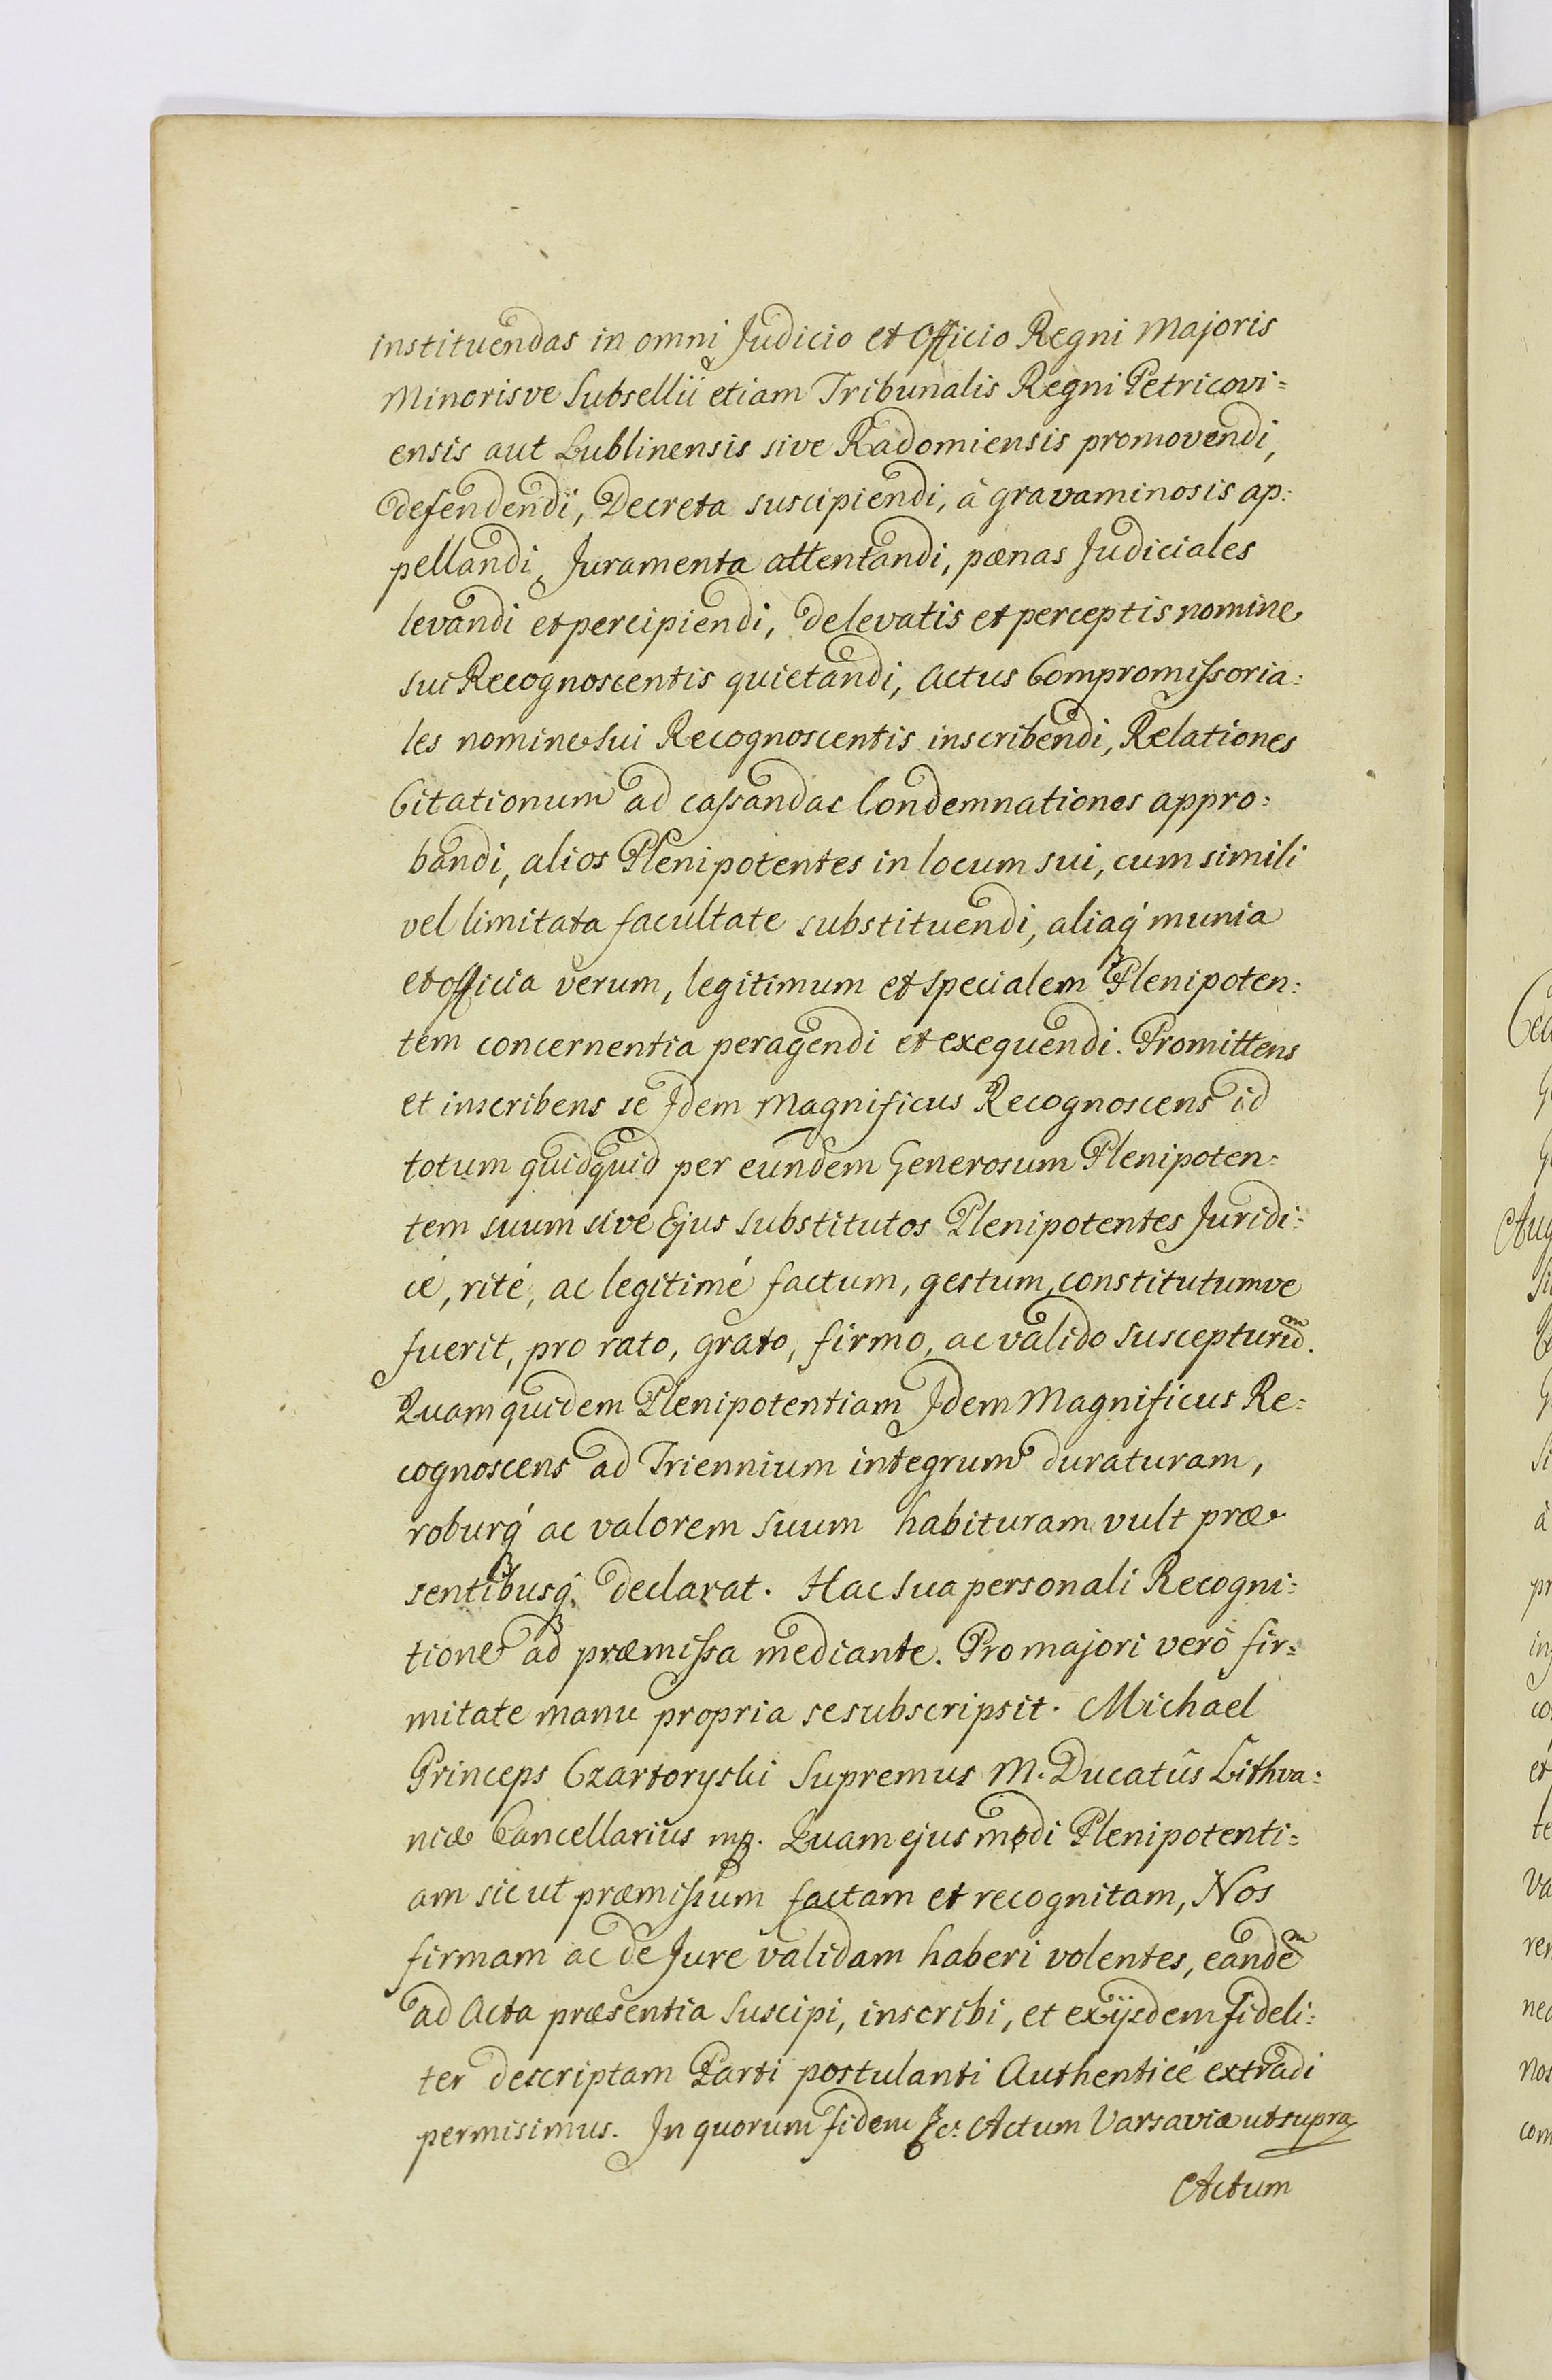 instituendas in omni Judicio et Officio Regni Majoris
Minorisve Subsellii etiam Tribunalis Regni Petricovi=
ensis aut Lublinensis sive Radomiensis promovendi,
defendendi, Decreta suscipiendi, à gravaminosis ap:
pellandi, Juramenta attentandi, pænas Judiciales
levandi et percipiendi, de levatis et perceptis nomine
sui Recognoscentis quietandi, Actus Compromissoria:
les nomine sui Recognoscentis inscribendi, Relationes
Citationum ad cassandas Condemnationes appro:
bandi, alios Plenipotentes in locum sui, cum simili
vel limitata facultate substituendi, aliaq́ munia
et officia verum, legitimum et specialem Plenipoten:
tem concernentia peragendi et exequendi. Promittens
et inscribens se Idem Magnificus Recognoscens id
totum quidquid per eundem Generosum Plenipoten:
tem suum sive Ejus substitutos Plenipotentes Juridi:
cé, rité, ac legitimé factum, gestum, constitutumve
fuerit, pro rato, grato, firmo, ac valido suscepturum.
Quamquidem Plenipotentiam Idem Magnificus Re:
cognoscens ad Triennium integrum duraturam,
roburq́ ac valorem suum habituram vult præ
sentibusq́ declarat. Hac sua personali Recogni:
tione ad præmissa mediante. Pro majori verò fir:
mitate manu propria se subscripsit. Michael
Princeps Czartoryski Supremus M. Ducatûs Lithva:
niæ Cancellarius mp. Quam ejusmodi Plenipotenti=
am sicut præmissum factam et recognitam, Nos
firmam ac de Jure validam haberi volentes, eandem
ad Acta præsentia suscipi, inscribi, et ex ijsdem fideli:
ter descriptam Parti postulanti Authenticè extradi
permisimus. In quorum fidem &c: Actum Varsaviæ ut supra
Actum